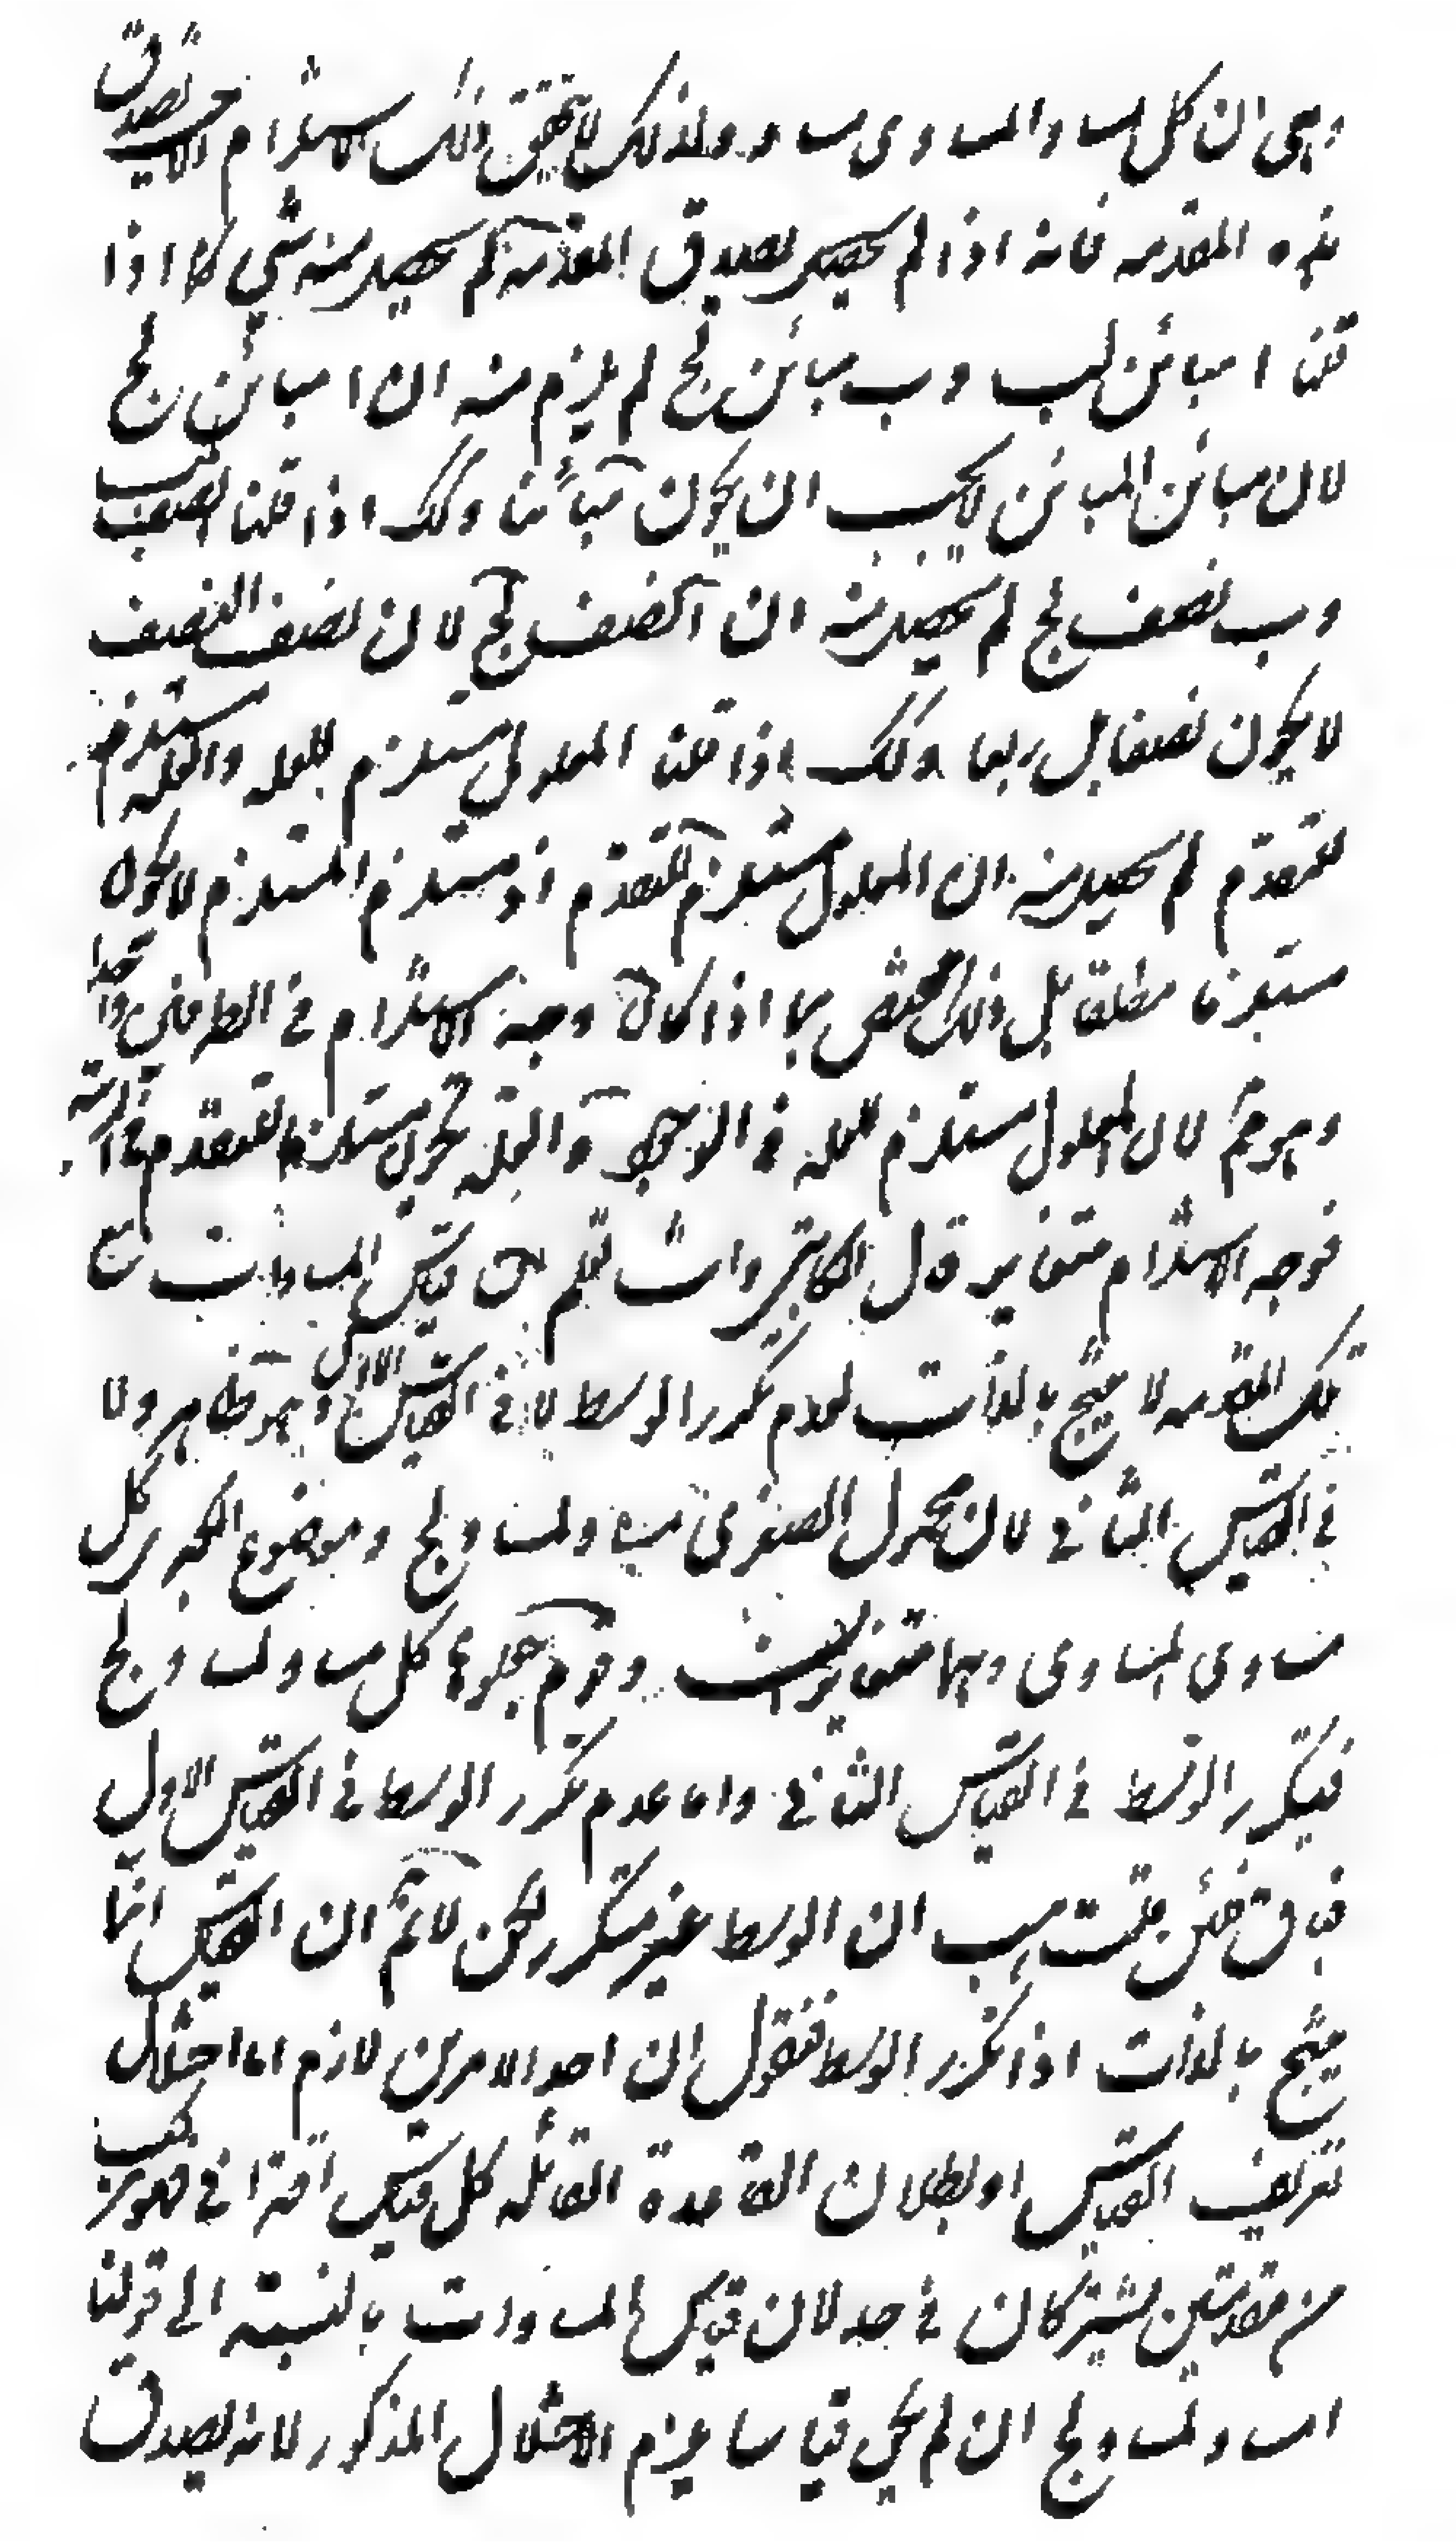 وهي ان كل مساو المساوي مساو ولذلك لا يتحقق ذلك الاستلزام الا حيث تصدق
هذه المقدمة فانه اذا لم يحصل تصديق المقدمة لم يحصل منه شي كما اذا
قلنا ا مبائن لب وب مبائن لج لم يلزم منه ان ا مبائن لج
لان مبائن المبائن لا يجب ان يكون مبائنا وكك اذا قلنا ا نصف لب
وب نصف لج لم يحصل منه ان ا نصف لج لان نصف النصف
لا يكون نصفا بل ربعا وكك اذا قلنا المعلول مستلزم للعلة والعلة مستلزم
للتقدم لم يحصل منه ان المعلول مستلزم للتقدم اذ مستلزم المستلزم لا يكون
مستلزما مطلقا بل ذلك مختص بما اذا كان وجه الاستلزام في الطرفين واحدا
وهو مم لان المعلول مستلزم للعلة في الوجود والعلة تكون مستلزما للتقدم في الذات
فوجه الاستلزام متغاير قال الكاتبي وانت تعلم ان قياس المساوات مع
تلك المقدمة لا ينتج بالذات لعدم تكرر الوسط لا في القياس الاول وهو ظاهر ولا
في القياس الثاني لان محمول الصغرى مساو لمساو لج وموضوع الكبرى كل
مساوي المساوي وهما متغايران وقوم جعلوها كل مساو لمساو لج
فيتكرر الوسط في القياس الثاني واما عدم تكرر الوسط في القياس الاول
فباق فئن قلت هب ان الوسط غير متكرر لكن لا نم ان القياس انما
ينتج بالذات اذا تكرر الوسط فنقول ان احد الامرين لازم اما اختلال
تعريف القياس او بطلان القاعدة القائلة كل قياس اقتراني فهو مركب
من مقدمتين مشتركان في حد لان قياس المساوات بالنسبة الى قولنا
ا مساو لمساو لج ان لم يكن قياسا يلزم الاختلال المذكور لانه يصدق